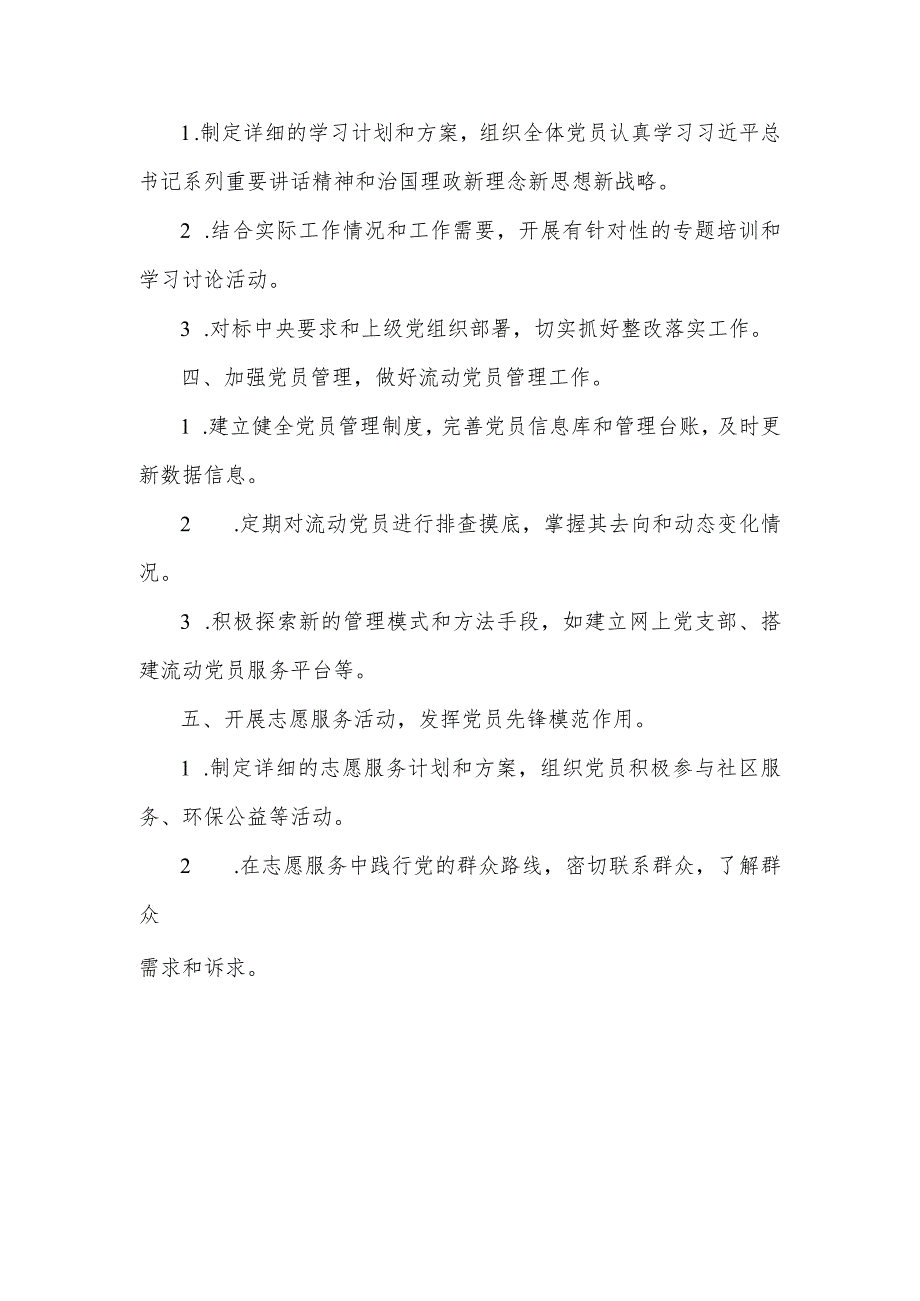 1.制定详细的学习计划和方案，组织全体党员认真学习习近平总
书记系列重要讲话精神和治国理政新理念新思想新战略。
2 .结合实际工作情况和工作需要，开展有针对性的专题培训和
学习讨论活动。
3 .对标中央要求和上级党组织部署，切实抓好整改落实工作。
四、加强党员管理，做好流动党员管理工作。
1 .建立健全党员管理制度，完善党员信息库和管理台账，及时更
新数据信息。
2 .定期对流动党员进行排查摸底，掌握其去向和动态变化情
况。
3 .积极探索新的管理模式和方法手段，如建立网上党支部、搭
建流动党员服务平台等。
五、开展志愿服务活动，发挥党员先锋模范作用。
1 .制定详细的志愿服务计划和方案，组织党员积极参与社区服
务、环保公益等活动。
2 .在志愿服务中践行党的群众路线，密切联系群众，了解群
众
需求和诉求。